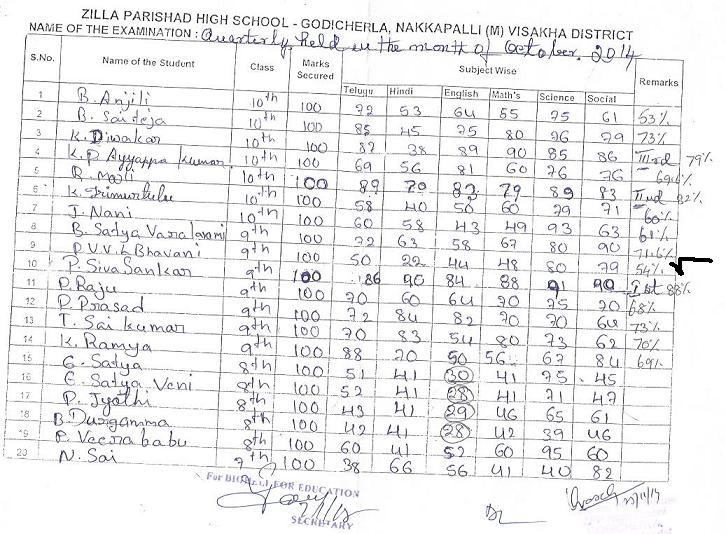 ZILLA PARISHAD HIGH SCHOOL - GODICHERLA, NAKKAPALLI (M) VISAKHA DISTRICT
NAME OF THE EXAMINATION : Quarterly, held in the month of October. 2014
S.No. Name of the Student Class Marks Secured Subject Wise Remarks
Telugu Hindi English Math's Science Social
1 B. Anjili 10th 100 72 53 64 55 75 61 53%
2 B. Sai teja 10th 100 85 45 75 80 76 79 73%
3 K. Diwakar 10th 100 87 38 89 90 85 86 IIIrd 79%
4 K. D Ayyappa Kumar 10th 100 69 56 81 60 76 76 69.6%
5 R. Mouli 10th 100 89 70 82 79 89 83 IInd 82%
6 K. Trimurthulu 10th 100 58 40 50 60 79 71 60%
7 J. Nani 10th 100 60 58 43 49 93 63 61%
8 B. Satya Vara 9th 100 72 63 58 67 80 90 71.6%
9 P.V.V.L Bhavani 9th 100 50 22 44 48 80 79 54%
10 P. Siva Sankar 9th 100 86 90 84 88 91 90 Ist 88%
11 D. Raju 9th 100 70 60 64 70 75 70 68%
12 D. Prasad 9th 100 72 84 82 70 70 64 73%
13 T. Sai kumar 9th 100 70 83 54 80 73 62 70%
14 K. Ramya 9th 100 88 70 50 56 67 84 69%
15 G. Satya 8th 100 51 41 30 41 75 45
16 E. Satya Veni 8th 100 52 41 28 41 71 47
17 P. Jyothi 8th 100 43 41 29 46 65 61
18 B. Durgamma 8th 100 42 41 28 42 39 46
19 P. Veera babu 8th 100 60 41 52 60 95 60
20 N. Sai 7th 100 38 66 56 41 40 82
For EDUCATION
SECRETARY